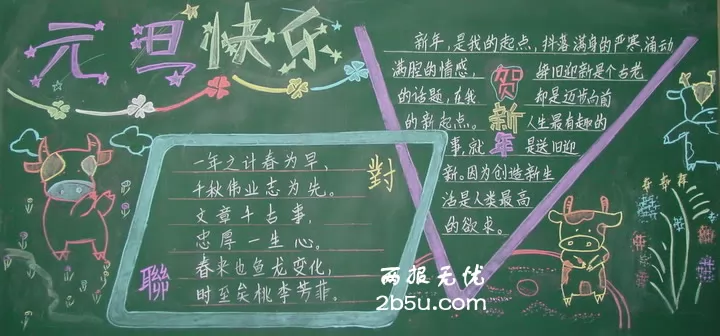 元旦快乐
新年，是我的起点，抖落满身的严寒涌动
满腔的情感，辞旧迎新是个古老
的话题，在我都是迈步向前
的新起点。人生最有趣的
事，就是送旧迎
新。因为创造新生
活是人类最高
的欲求。
贺新年
對聯
一年之计春为早，
千秋伟业志为先。
文章千古事，
忠厚一生心。
春来也鱼龙变化，
时至矣桃李芳菲。
两报无忧
2b5u.com